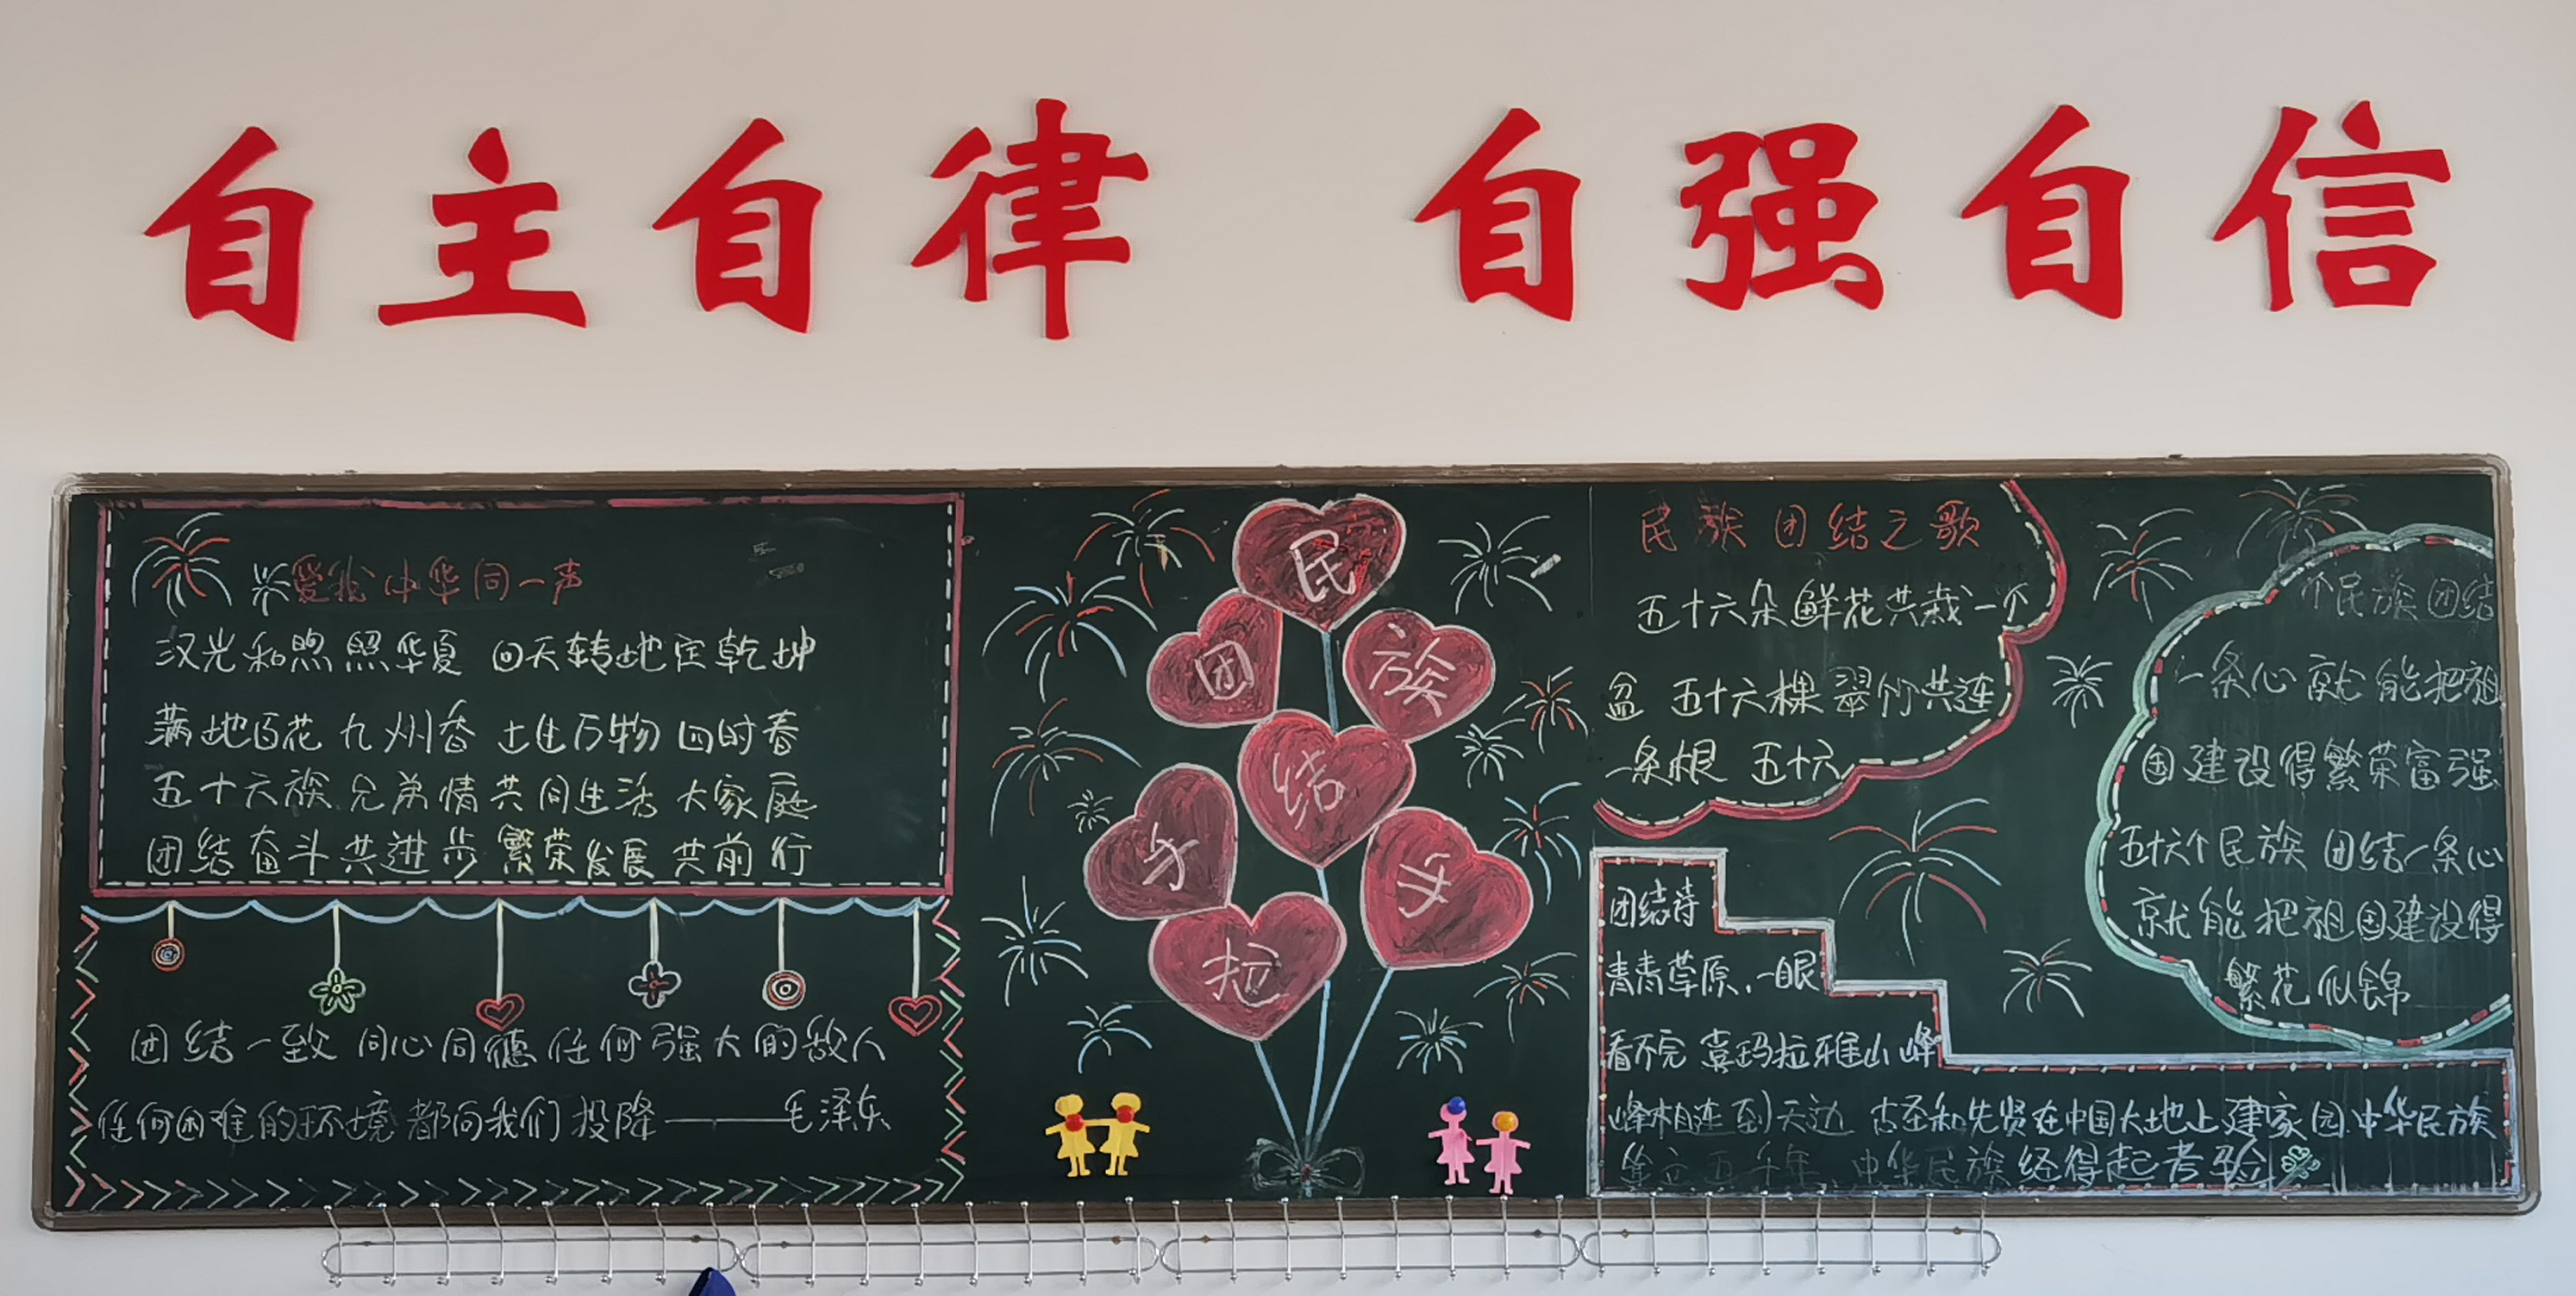 自主自律 自强自信
爱我中华同一声
汉光和煦照华夏 回天转地定乾坤
满地百花九州香 土生万物四时春
五十六族兄弟情共同生活大家庭
团结奋斗共进步繁荣发展共前行
团结一致同心同德任何强大的敌人
任何困难的环境都向我们投降——毛泽东
民
族
团
结
手
拉
手
民族团结之歌
五十六朵鲜花共栽一个
盆 五十六棵翠竹共连
一条根 五十六
个民族团结
一条心就能把祖
国建设得繁荣富强
五十六个民族团结一条心
就能把祖国建设得
繁花似锦
团结诗
青青草原,一眼
看不完 喜玛拉雅山峰
峰相连到天边 古圣和先贤在中国大地上建家园.中华民族
五千年 中华民族经得起考验